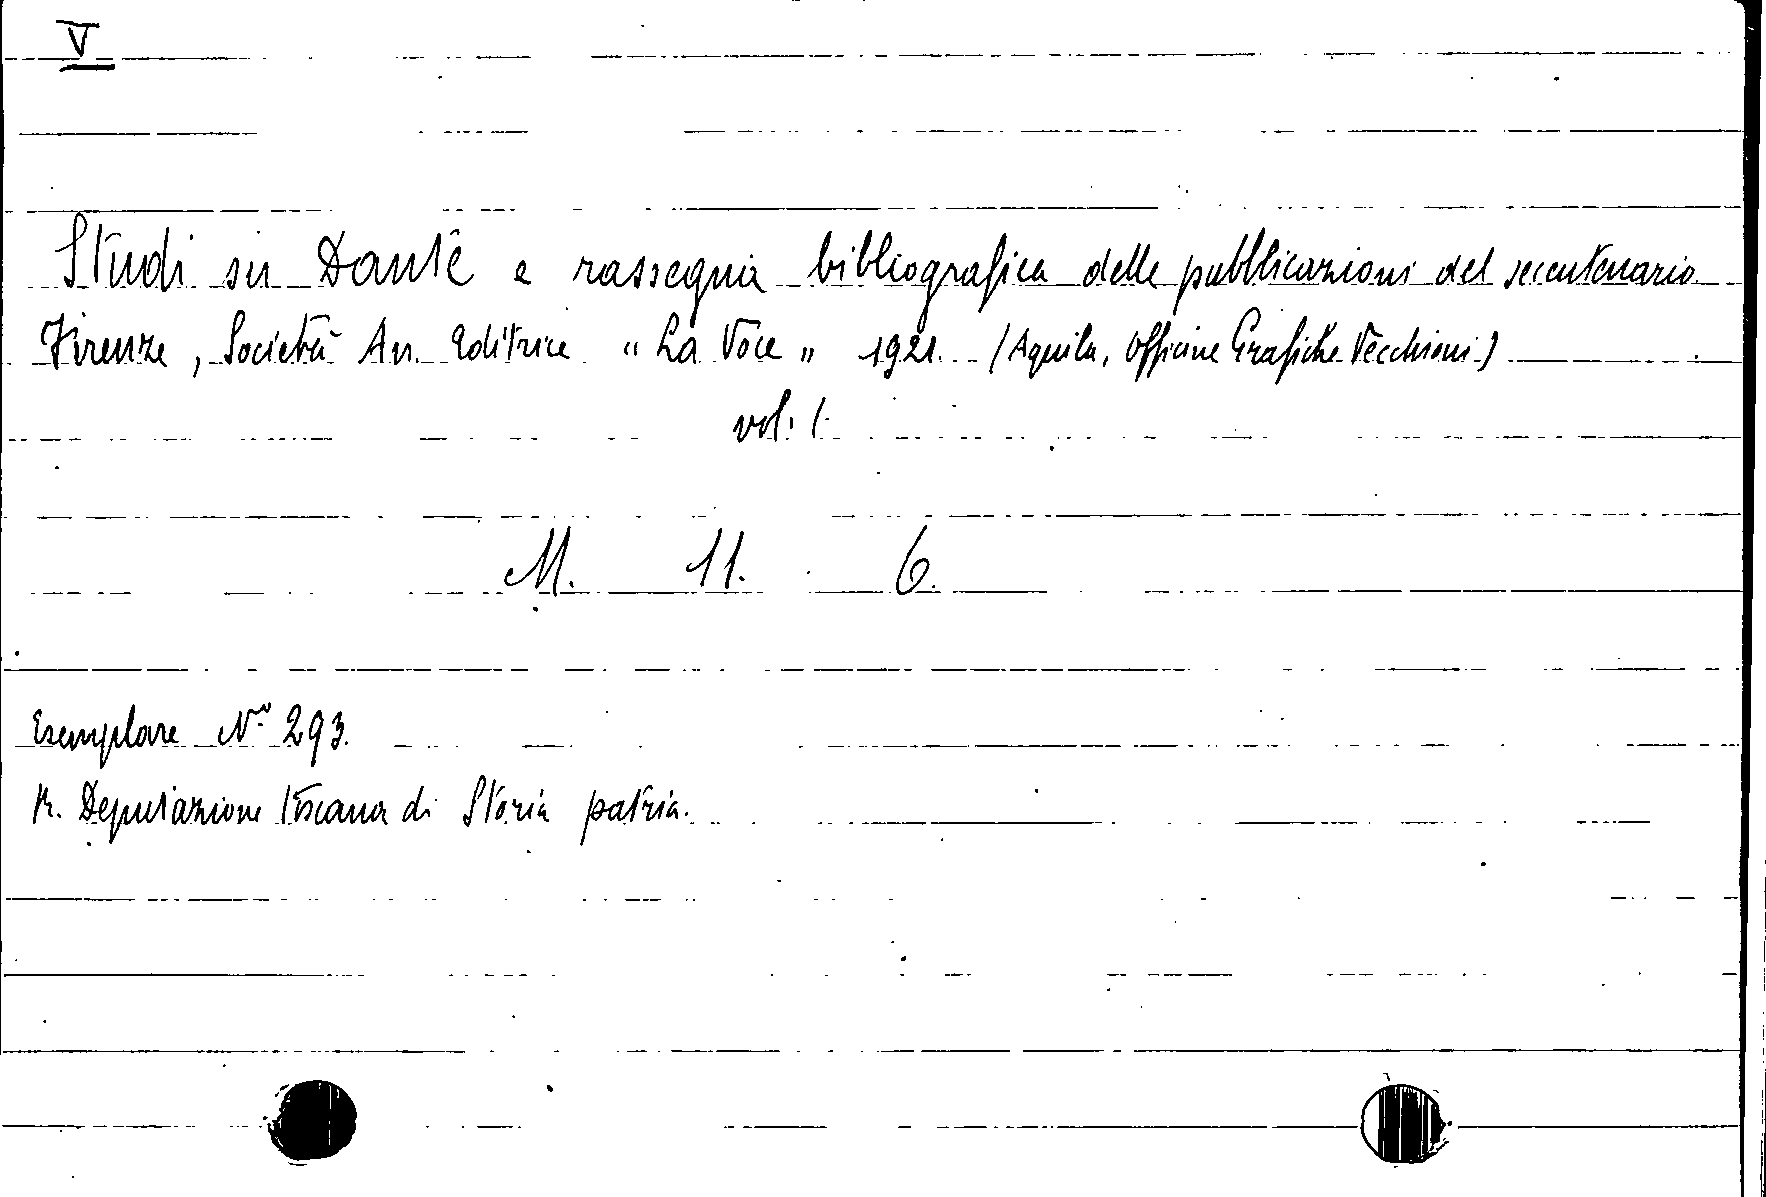 V
Studi su Dante e rassegna bibliografica delle pubblicazioni del secentenario
Firenze, Società An. Editrice "La Voce" 1921. (Aquila, Officine Grafiche Vecchioni)
vol. I.
M. 11. 6.
Esemplare N.º 293.
R. Deputazione toscana di Storia patria.